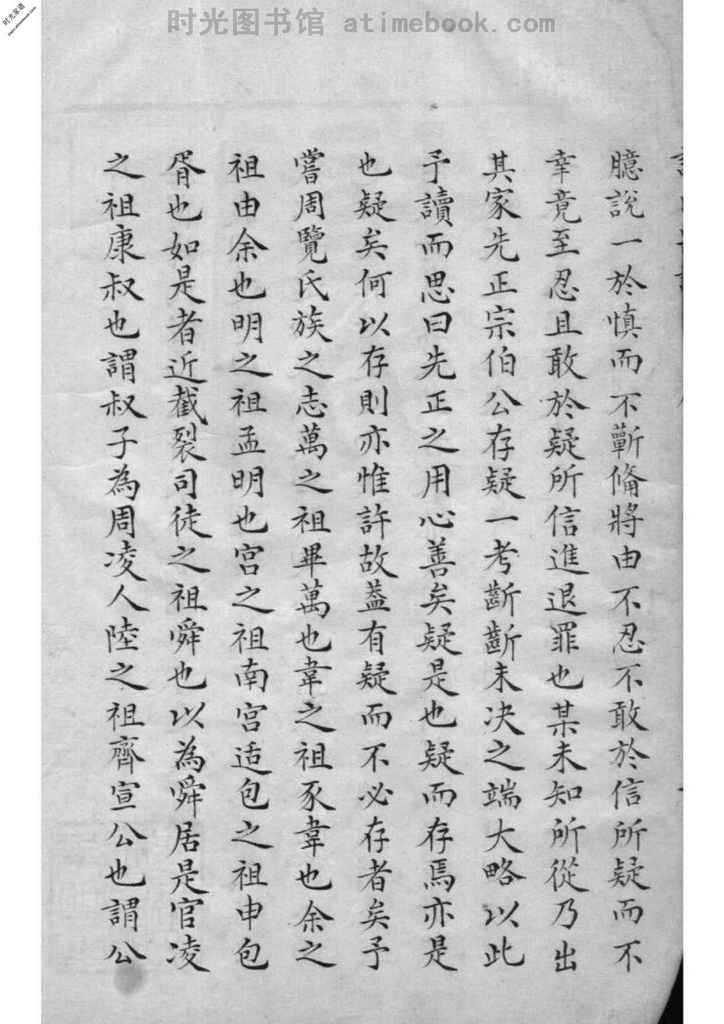 时光图书馆 atimebook.com
时光家谱
臆説一於慎而不蘄脩將由不忍不敢於信所疑而不
幸竟至忍且敢於疑所信進退罪也某未知所從乃出
其家先正宗伯公存疑一考斷斷未决之端大略以此
予讀而思曰先正之用心善矣疑是也疑而存焉亦是
也疑矣何以存則亦惟許故葢有疑而不必存者矣予
嘗周覽氏族之志萬之祖畢萬也韋之祖豕韋也余之
祖由余也明之祖孟明也宫之祖南宫适包之祖申包
胥也如是者近截裂司徒之祖舜也以為舜居是官凌
之祖康叔也謂叔子為周凌人陸之祖齊宣公也謂公